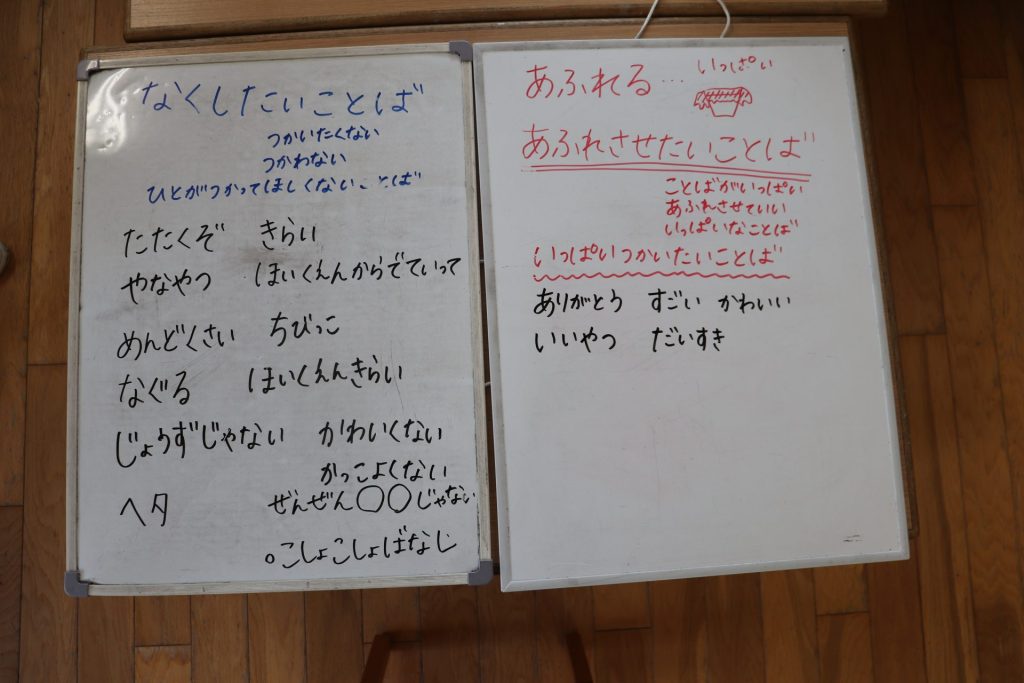 なくしたいことば
つかいたくない
つかわない
ひとがつかってほしくないことば
たたくぞ きらい
やなやつ ほいくえんからでていって
めんどくさい ちびっこ
なぐる ほいくえんきらい
じょうずじゃない かわいくない
かっこよくない
ヘタ ぜんぜん〇〇じゃない
。こしょこしょばなし
あふれる… いっぱい
あふれさせたいことば
ことばがいっぱい
あふれさせていい
いっぱいなことば
いっぱいつかいたいことば
ありがとう すごい かわいい
いいやつ だいすき